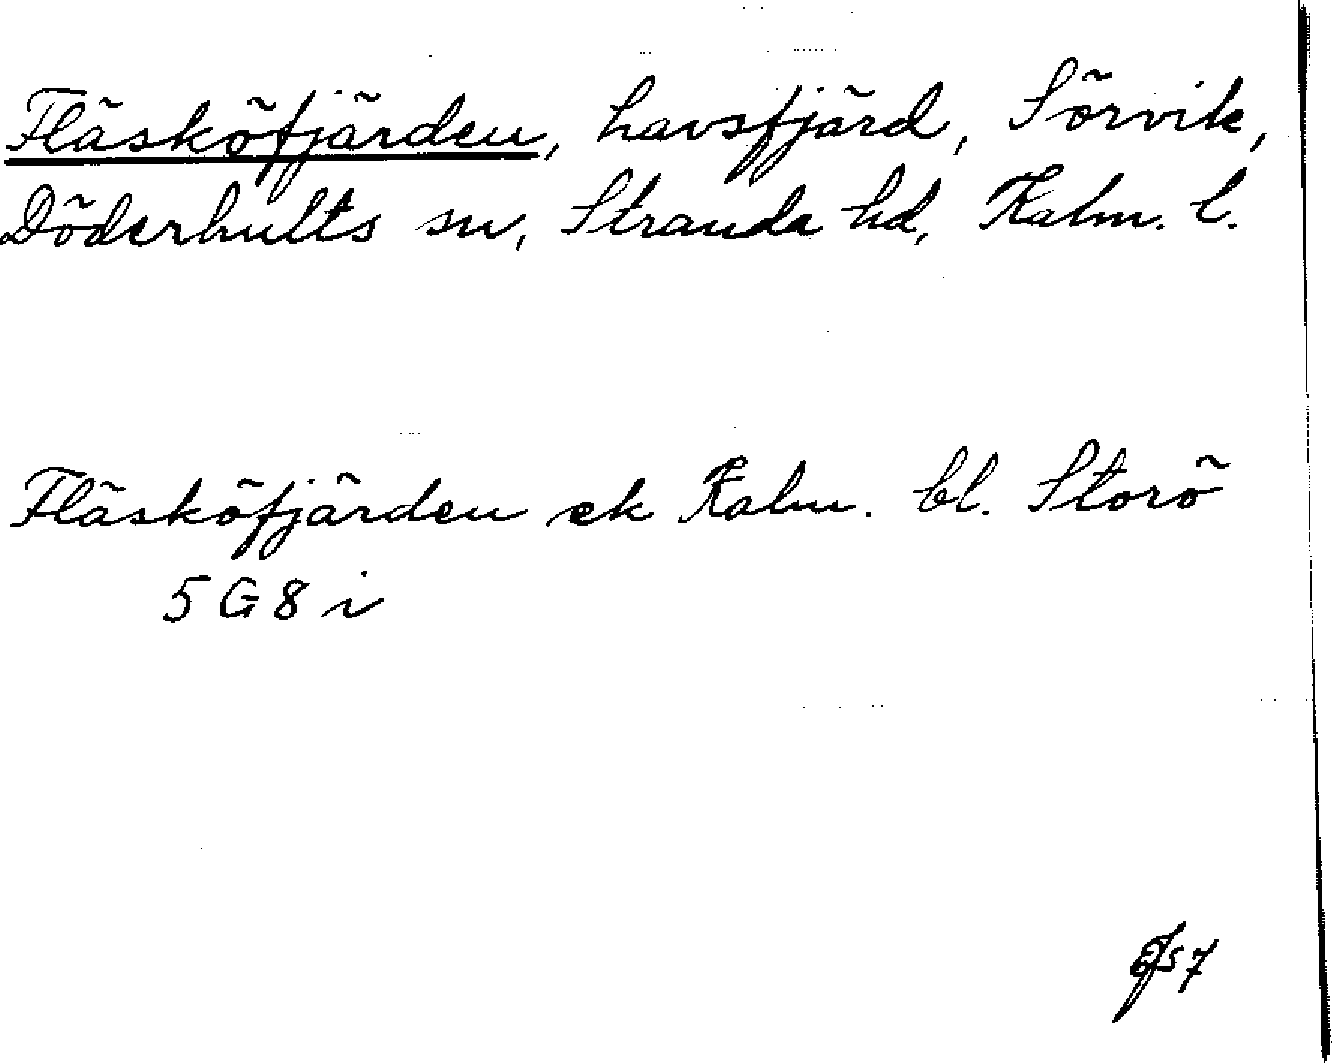 Fläsköfjärden, havsfjärd, Sörvik,
Döderhults sn, Stranda hd, Kalm. l.
Fläsköfjärden ek Kalm. bl. Storö
5G8i